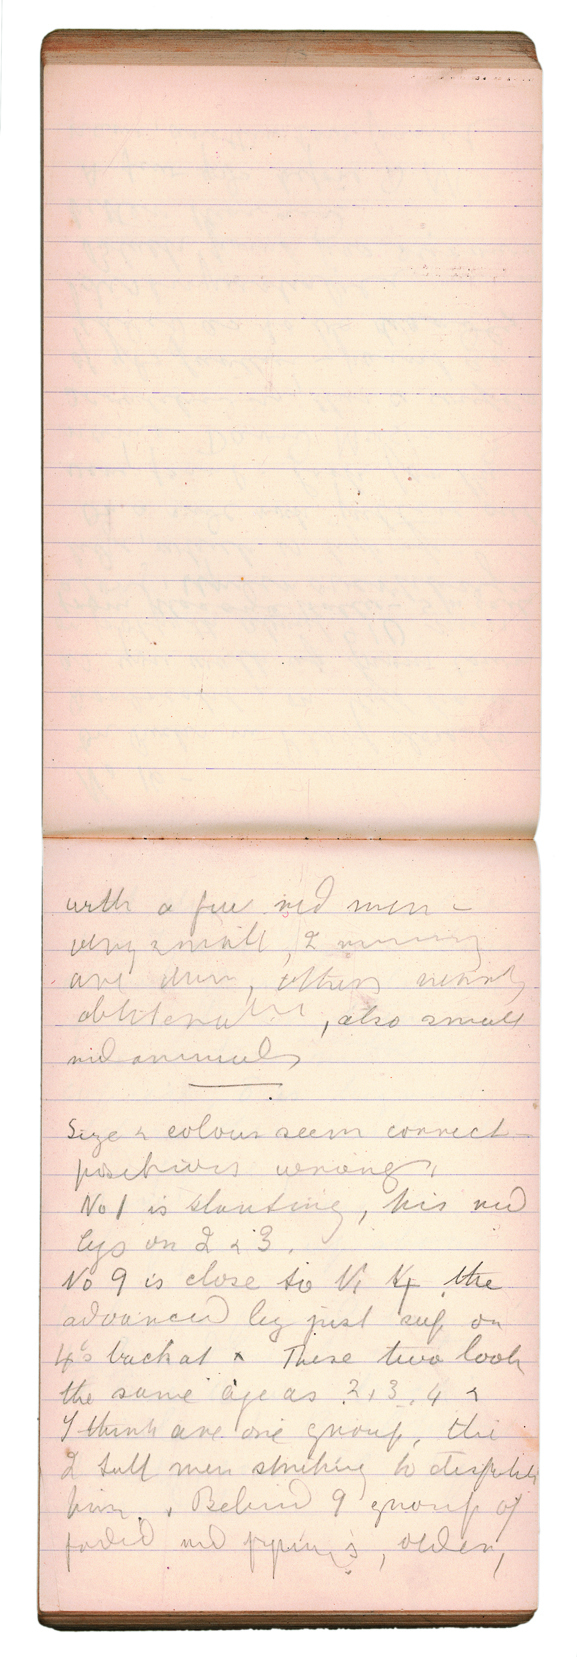 with a few red men –
very small, 2 running
are dim, others nearly
obliterated, also small
red animals
Size & colour seem correct –
positions wrong,
No 1 is slanting, his red
legs on 2 & 3.
No 9 is close to No 4, the
advanced leg just sup on
4's back at x These two look
the same age as 2, 3, 4 &
I think are one group, the
2 tall men striking to
him. Behind 9 group of
faded red, older,